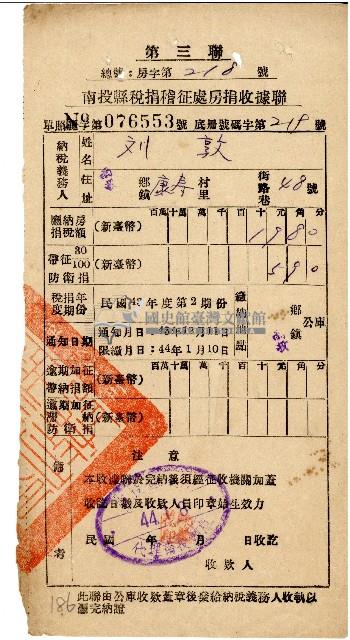 第三聯
總號：房字第218號
南投縣稅捐稽征處房捐收據聯
單照應字第 № 076553 號 底層號碼字第219號
納稅義務人
姓名 刘敦
住址 鄉鎮 康壽 村里 街路巷 48號
百十萬千百十元角分
應納房捐稅額 (新臺幣) 1980
帶征30/100防衛捐 (新臺幣) 590
稅捐年度期份 民國43年度第2期份
通知日期 通知日期:43年12月11日
限繳日期:44年1月10日
繳納地點 鄉鎮 公庫
百十萬千百十元角分
逾期加征滯納捐額 (新臺幣)
逾期加征滯納防衛捐 (新臺幣)
備考
注意
本收據聯於完納後須經征收機關加蓋
收訖日戳及收款人員印章始生效力
民國 年 月 日收訖
44
收款人
此聯由公庫收款蓋章後發給納稅義務人收執以
憑完納證
186
國史館臺灣文獻館